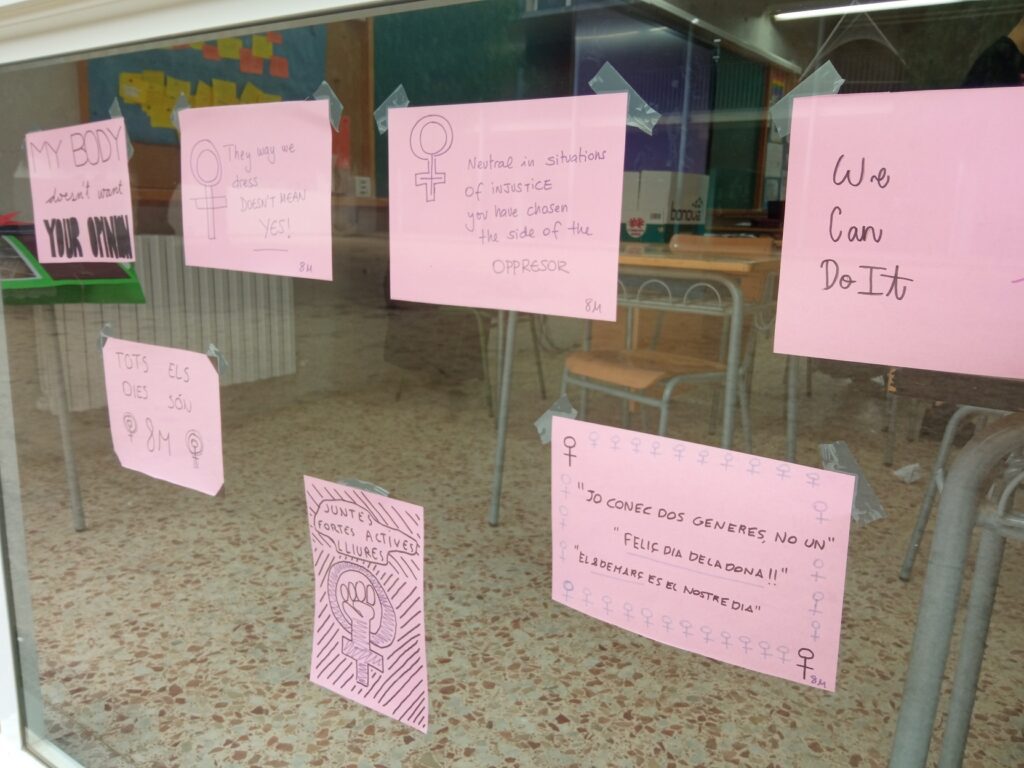 MY BODY
doesn't want
YOUR OPINION
They way we
dress
DOESN'T MEAN
YES!
8M
Neutral in situations
of INJUSTICE
you have chosen
the side of the
OPPRESOR
8M
We
Can
Do It
TOTS ELS
DIES SÓN
8M
JUNTES
FORTES ACTIVES
LLIURES
"JO CONEC DOS GENERES, NO UN"
"FELIÇ DIA DE LA DONA!!"
"EL 8 DE MARÇ ES EL NOSTRE DIA"
8M